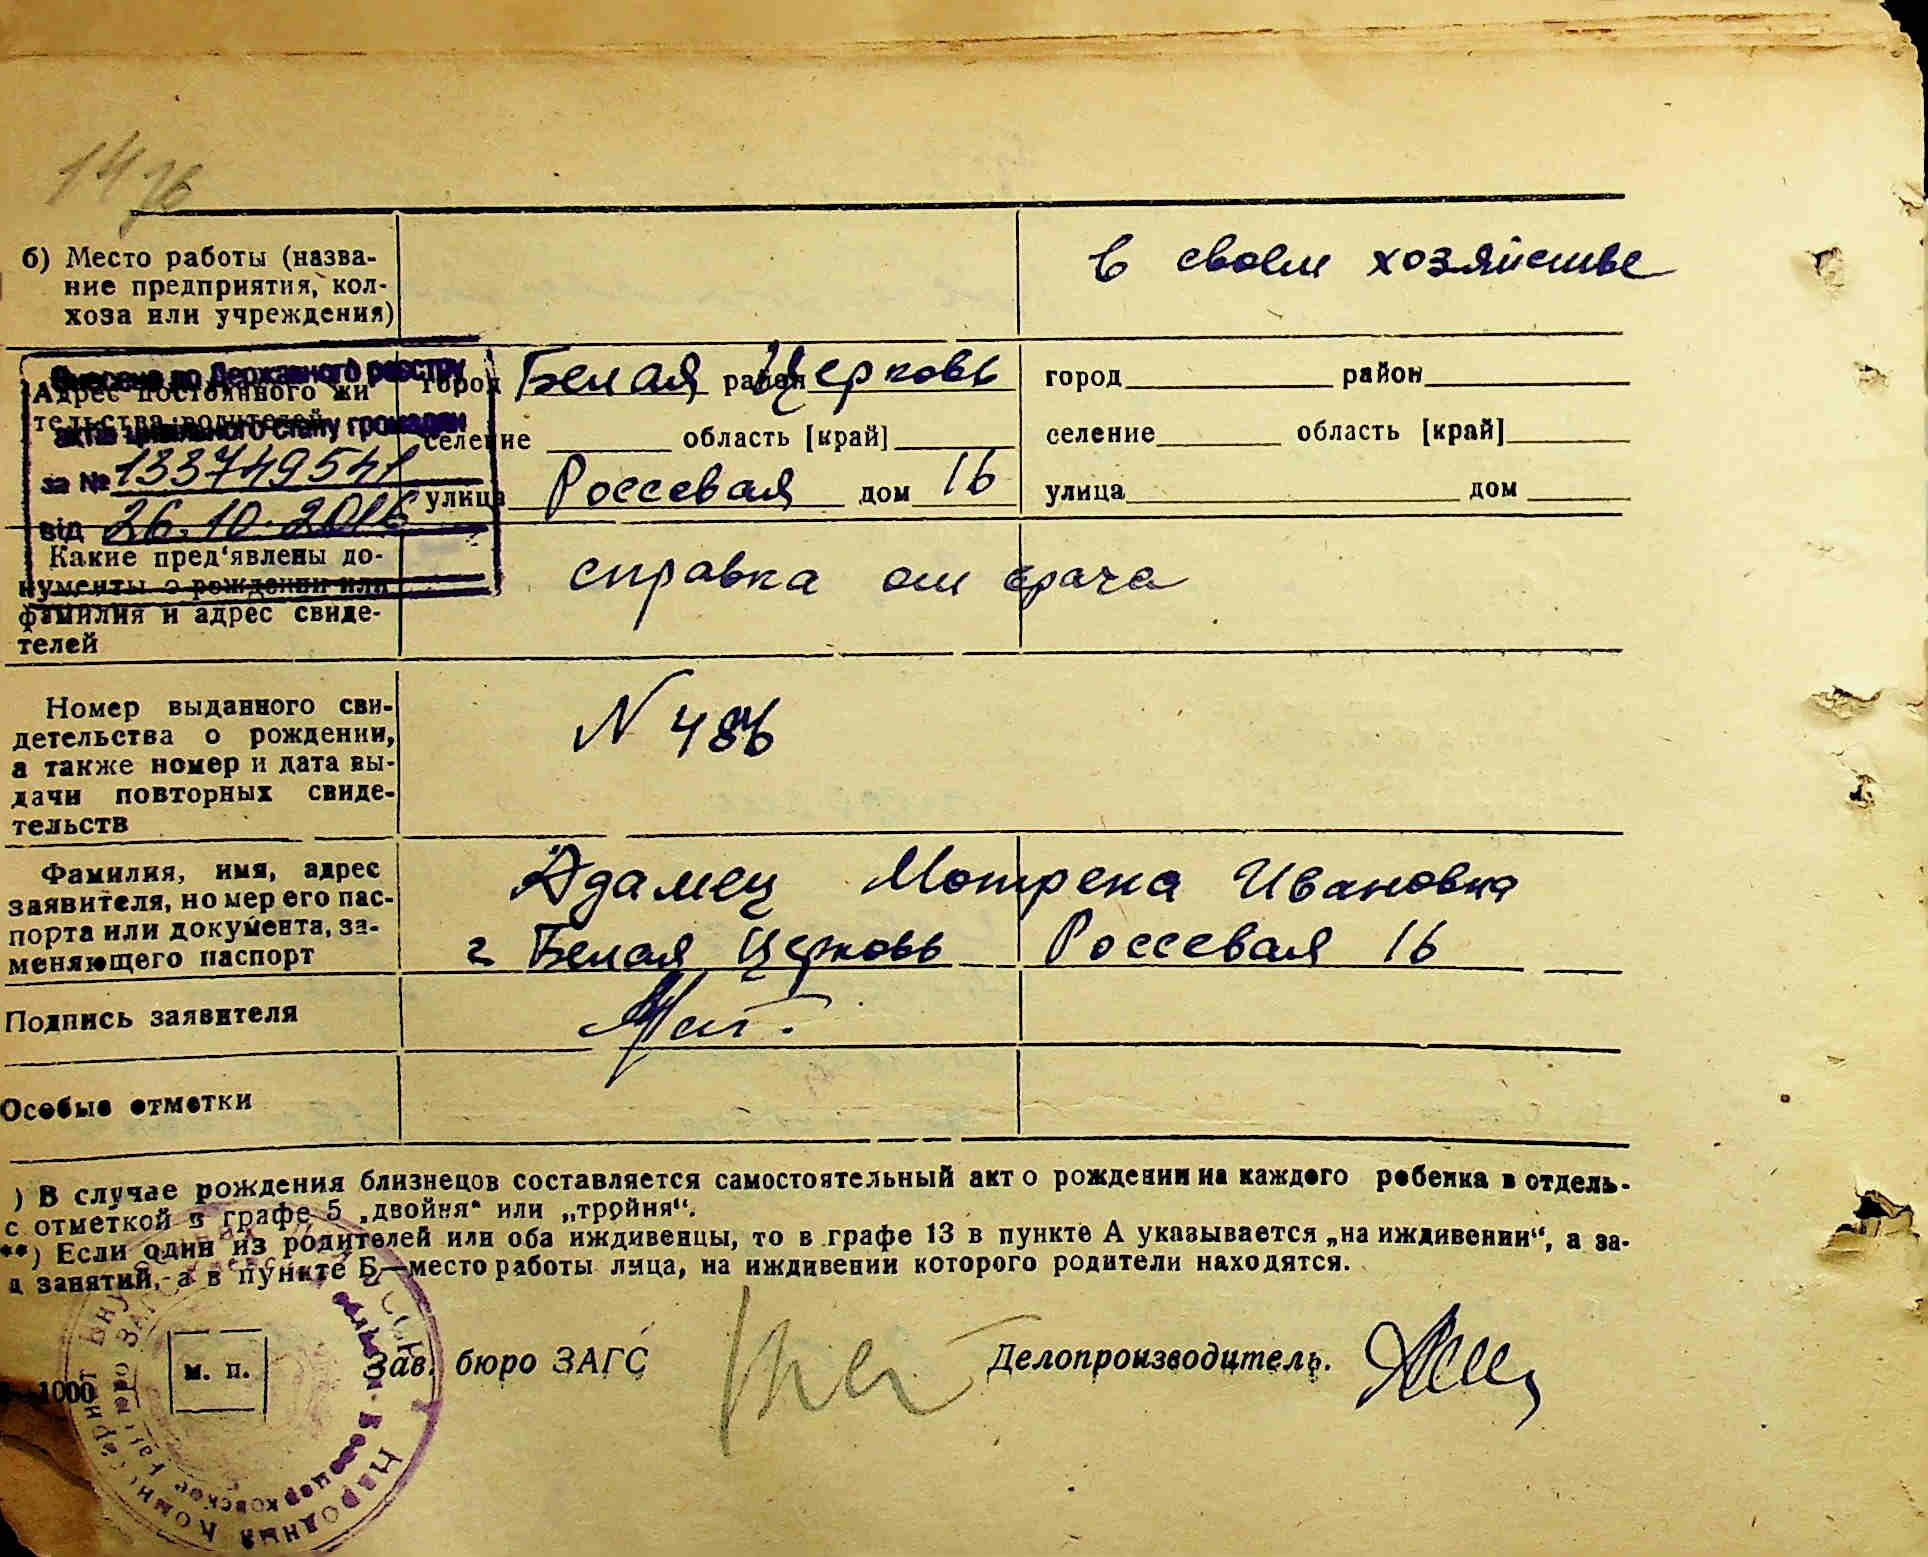 1476
б) Место работы (назва-
ние предприятия, кол-
хоза или учреждения)
в своем хозяйстве
Внесено до Державного реєстру
актів цивільного стану громадян
за № 133749541
від 26.10.2016
Адрес постоянного жи
тельства родителей
город Белая район Церковь
селение область [край]
улица Россевая дом 16
город район
селение область [край]
улица дом
Какие пред'явлены до-
кументы о рождении или
фамилия и адрес свиде-
телей
справка от врача
Номер выданного сви-
детельства о рождении,
а также номер и дата вы-
дачи повторных свиде-
тельств
N 486
Фамилия, имя, адрес
заявителя, номер его пас-
порта или документа, за-
меняющего паспорт
Адамец Мотрена Ивановна
г Белая Церковь Россевая 16
Подпись заявителя
Особые отметки
) В случае рождения близнецов составляется самостоятельный акт о рождении на каждого ребенка в отдель-
с отметкой в графе 5 „двойня“ или „тройня“.
**) Если один из родителей или оба иждивенцы, то в графе 13 в пункте А указывается „на иждивении“, а за-
д занятий,-а в пункте Б—место работы лица, на иждивении которого родители находятся.
м. п.
Зав. бюро ЗАГС
Делопроизводитель.
1000
Народный Комиссариат Внутренних